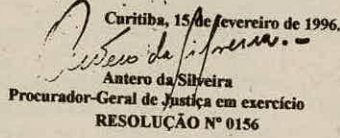 Curitiba, 15 de fevereiro de 1996.
Antero da Silveira
Antero da Silveira
Procurador-Geral de Justiça em exercício
RESOLUÇÃO Nº 0156